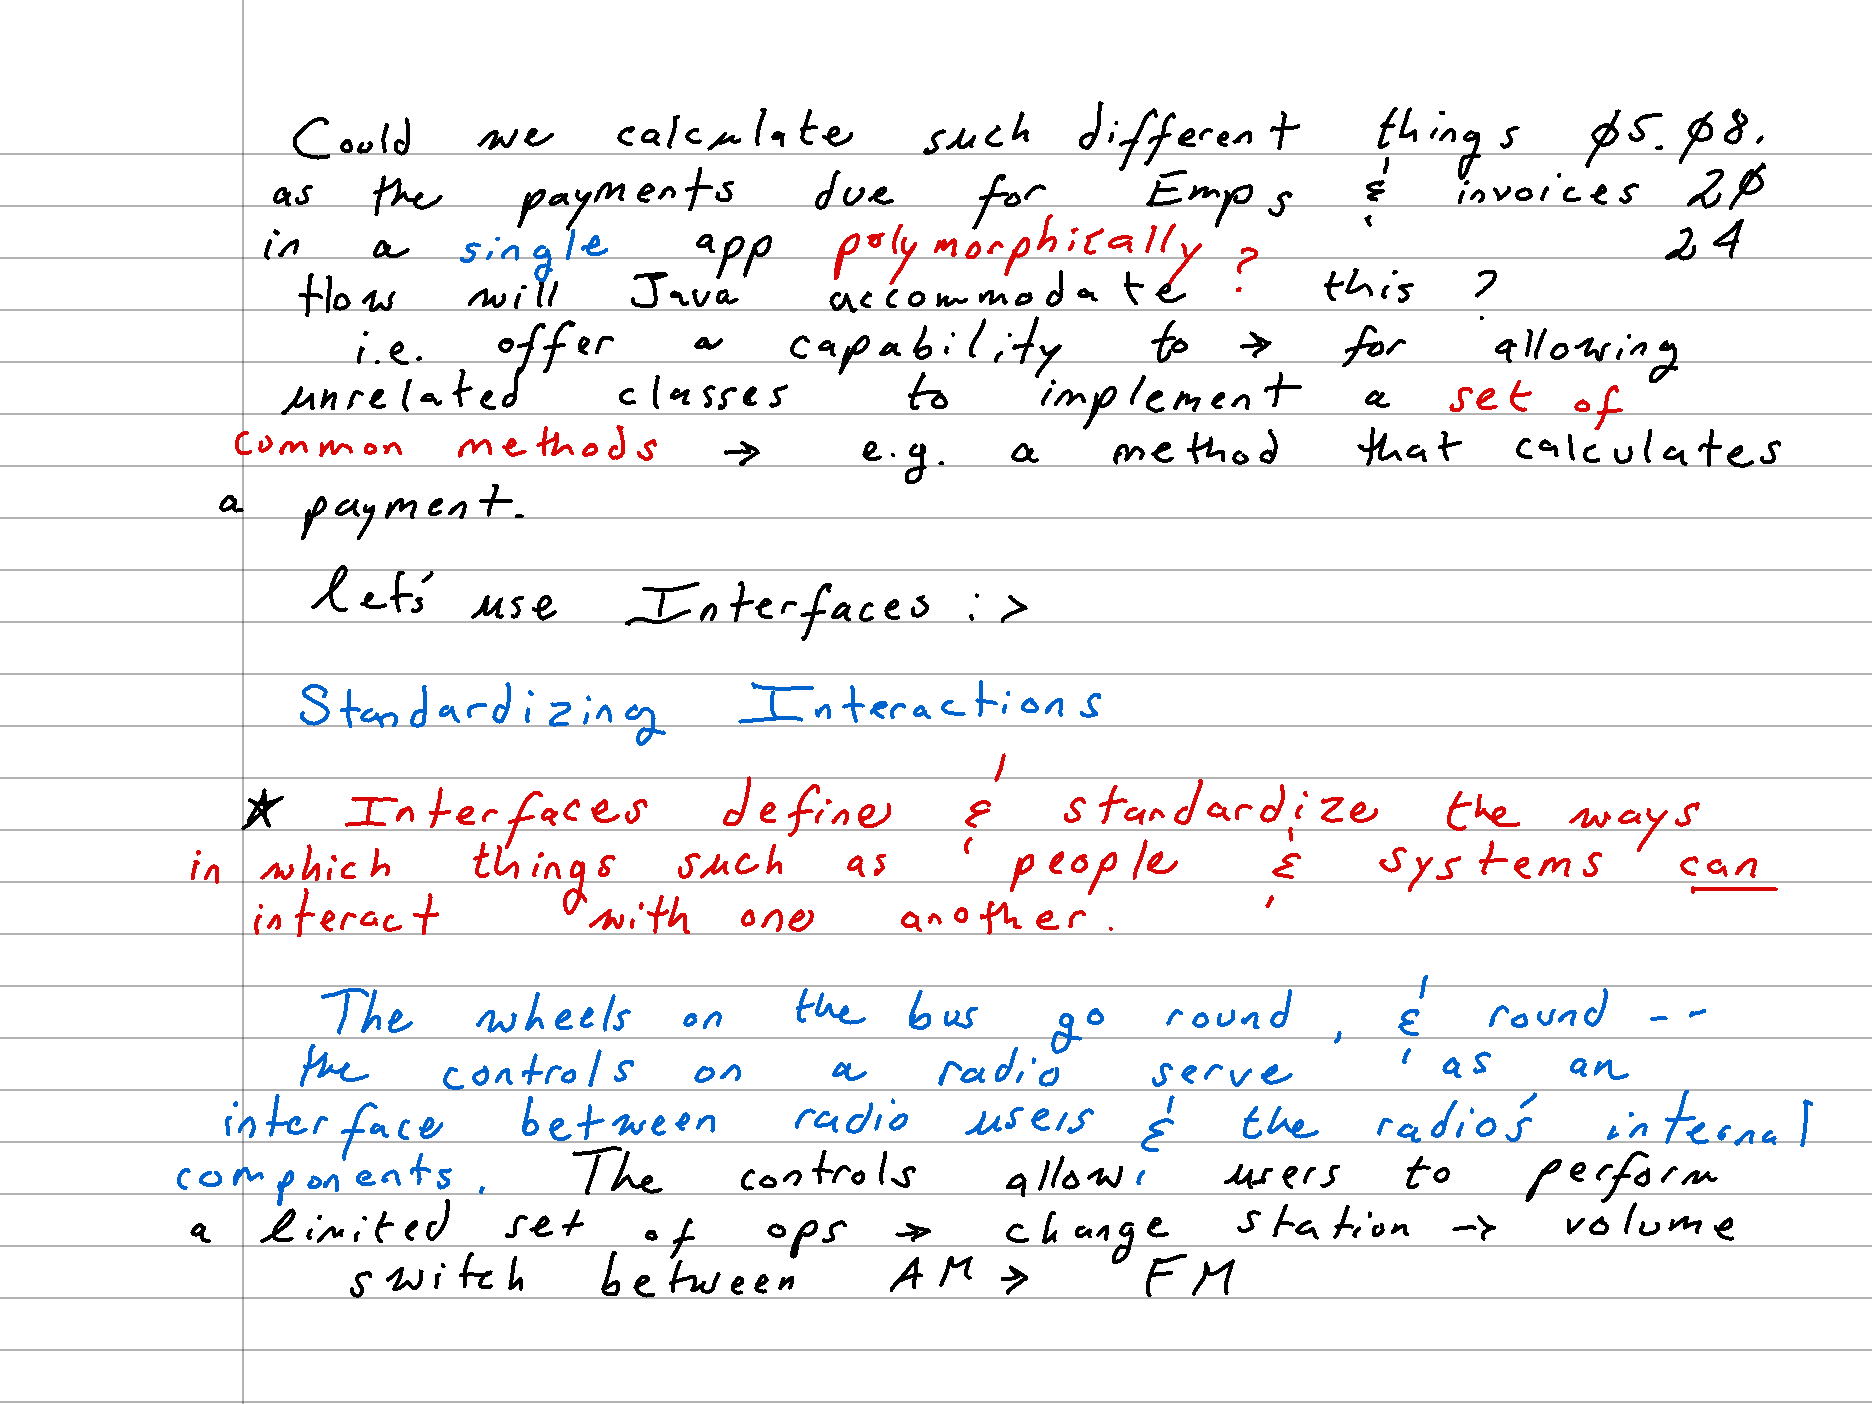 Could we calculate such different things 05.08.
as the payments due for Emps & invoices 20
in a single app polymorphically? 24
How will Java accommodate this?
i.e. offer a capability to → for allowing
unrelated classes to implement a set of
common methods → e.g. a method that calculates
a payment.
let's use Interfaces :>
Standardizing Interactions
★ Interfaces define & standardize the ways
in which things such as people & systems can
interact with one another.
The wheels on the bus go round, & round --
the controls on a radio serve as an
interface between radio users & the radio's internal
components. The controls allow users to perform
a limited set of ops → change station → volume
switch between AM → FM